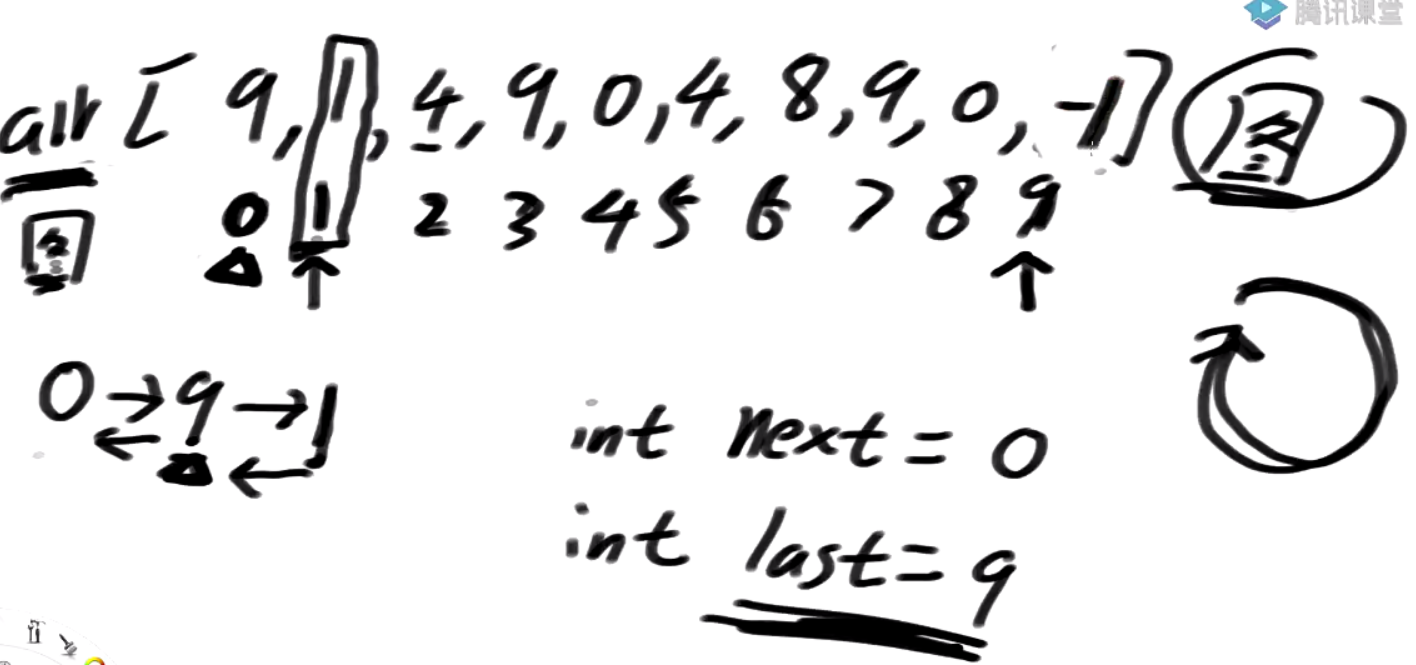 腾讯课堂
arr [ 9, 1, 4, 9, 0, 4, 8, 9, 0, -1] 图
0 1 2 3 4 5 6 7 8 9
图
0→9→1
int next = 0
int last = 9